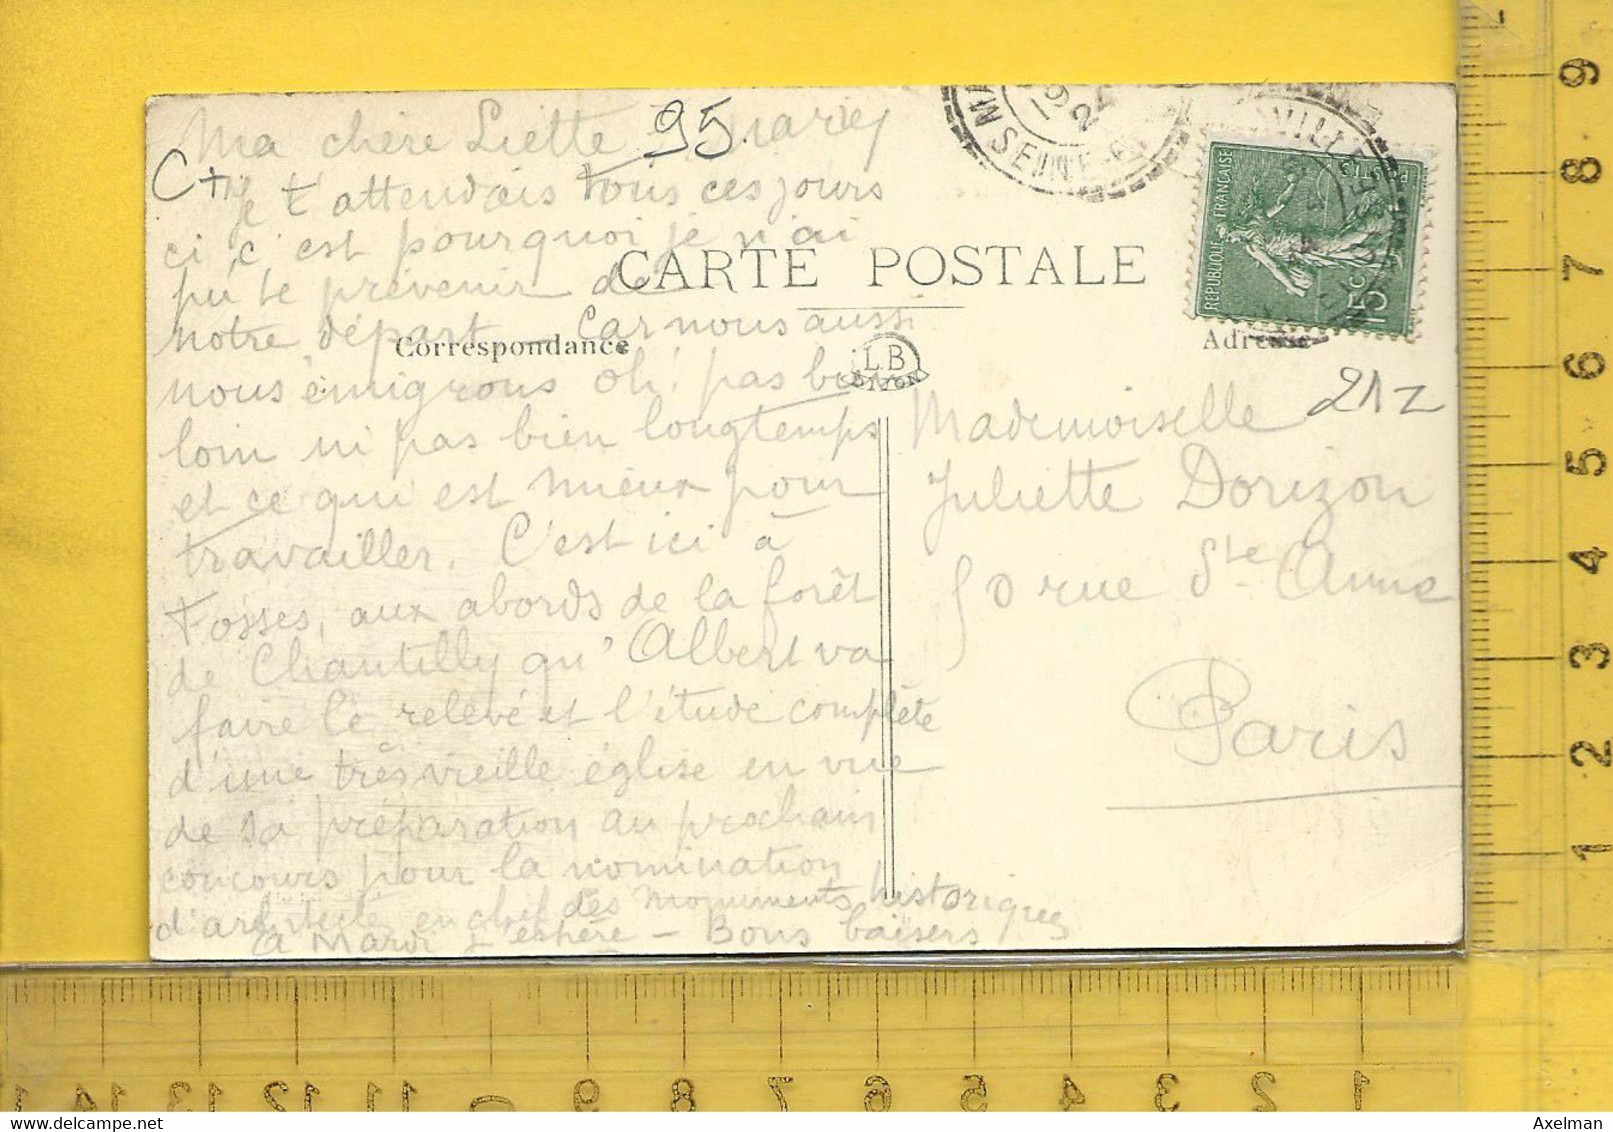 Ma chère Liette
95
C+
Je t'attendais tous ces jours
ci c'est pourquoi je n'ai
pu te prévenir de
notre départ — Car nous aussi
nous émigrons oh! pas bien
loin ni pas bien longtemps
et ce qui est mieux pour
travailler. C'est ici à
Fosses, aux abords de la forêt
de Chantilly qu'Albert va
faire le relevé et l'étude complète
d'une très vieille église en vue
de sa préparation au prochain
concours pour la nomination
d'architecte en chef des Monuments historiques
à Mardi j'espère — Bons baisers
CARTE POSTALE
Correspondance
L.B
DIJON
Adresse
SEINE
19
24
REPUBLIQUE FRANÇAISE
POSTES
15c
21z
Mademoiselle
Juliette Dorizon
50 rue Ste Anne
Paris
9
8
7
6
5
4
3
2
1
14 13 12 11 9 8 7 6 5 4 3 2 1
www.delcampe.net
Axelman